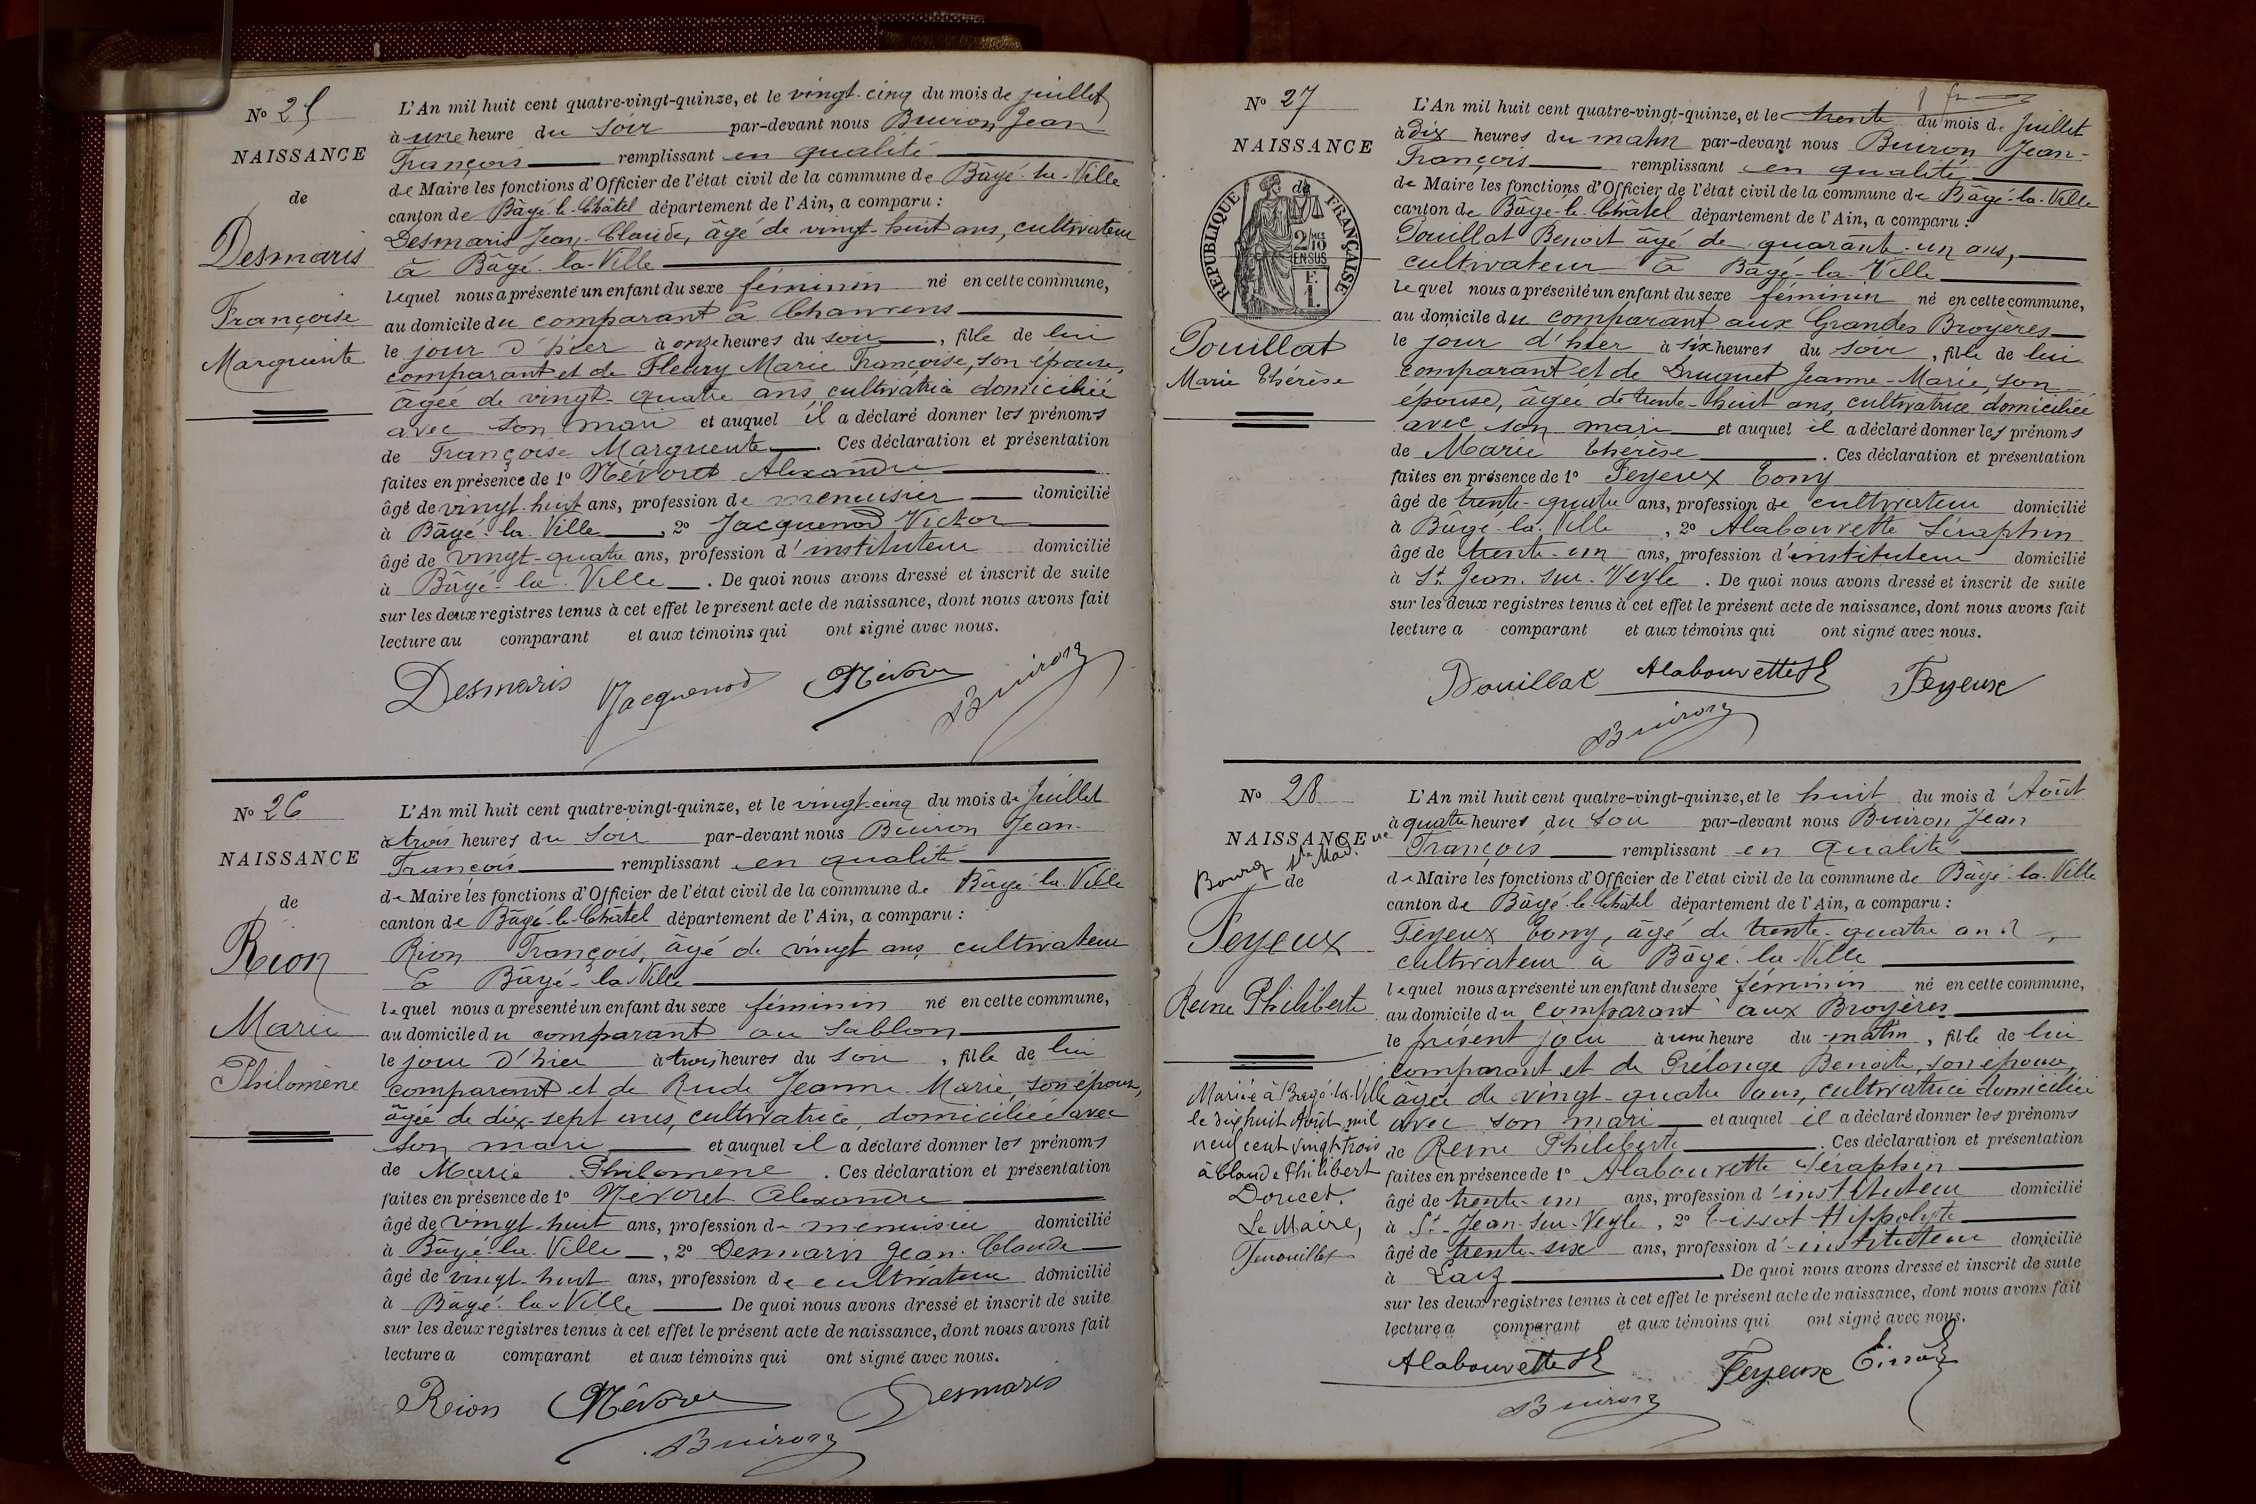 No 25
NAISSANCE
de
Desmaris
Françoise
Marguerite
L'An mil huit cent quatre-vingt-quinze, et le vingt-cinq du mois de juillet
à une heure du soir par-devant nous Buiron Jean
François remplissant en qualité
de Maire les fonctions d'Officier de l'état civil de la commune de Bâgé-la-Ville
canton de Bâgé-le-Châtel département de l'Ain, a comparu :
Desmaris Jean-Claude, âgé de vingt-huit ans, cultivateur
à Bâgé-la-Ville
lequel nous a présenté un enfant du sexe féminin né en cette commune,
au domicile du comparant à Chanrens
le jour d'hier à onze heures du soir, fille de lui
comparant et de Fleury Marie Françoise, son épouse,
âgée de vingt-quatre ans, cultivatrice domiciliée
avec son mari et auquel il a déclaré donner les prénoms
de Françoise Marguerite. Ces déclaration et présentation
faites en présence de 1o Névoret Alexandre
âgé de vingt-huit ans, profession de menuisier domicilié
à Bâgé-la-Ville, 2o Jacquenod Victor
âgé de vingt-quatre ans, profession d'instituteur domicilié
à Bâgé-la-Ville. De quoi nous avons dressé et inscrit de suite
sur les deux registres tenus à cet effet le présent acte de naissance, dont nous avons fait
lecture au comparant et aux témoins qui ont signé avec nous.
Desmaris Jacquenod Névoret Buiron
No 26
NAISSANCE
de
Rion
Marie
Philomène
L'An mil huit cent quatre-vingt-quinze, et le vingt-cinq du mois de Juillet
à trois heures du soir par-devant nous Buiron Jean-
François remplissant en qualité
de Maire les fonctions d'Officier de l'état civil de la commune de Bâgé-la-Ville
canton de Bâgé-le-Châtel département de l'Ain, a comparu :
Rion François, âgé de vingt ans cultivateur
à Bâgé-la-Ville
lequel nous a présenté un enfant du sexe féminin né en cette commune,
au domicile du comparant au Sablon
le jour d'hier à trois heures du soir, fille de lui
comparant et de Rude Jeanne-Marie, son épouse,
âgée de dix-sept ans, cultivatrice, domiciliée avec
son mari et auquel il a déclaré donner les prénoms
de Marie Philomène. Ces déclaration et présentation
faites en présence de 1o Névoret Alexandre
âgé de vingt-huit ans, profession de menuisier domicilié
à Bâgé-la-Ville, 2o Desmaris Jean-Claude
âgé de vingt-huit ans, profession de cultivateur domicilié
à Bâgé-la-Ville De quoi nous avons dressé et inscrit de suite
sur les deux registres tenus à cet effet le présent acte de naissance, dont nous avons fait
lecture a comparant et aux témoins qui ont signé avec nous.
Rion Névoret Desmaris
Buiron
No 27
NAISSANCE
de
RÉPUBLIQUE FRANÇAISE
2/10 EN SUS
Pouillat
Marie Thérèse
L'An mil huit cent quatre-vingt-quinze, et le trente du mois de Juillet
à dix heures du matin par-devant nous Buiron Jean-
François remplissant en qualité
de Maire les fonctions d'Officier de l'état civil de la commune de Bâgé-la-Ville
canton de Bâgé-le-Châtel département de l'Ain, a comparu :
Pouillat Benoit âgé de quarante-un ans,
cultivateur à Bâgé-la-Ville
lequel nous a présenté un enfant du sexe féminin né en cette commune,
au domicile du comparant aux Grandes Broyères
le jour d'hier à six heures du soir, fille de lui
comparant et de Druguet Jeanne-Marie, son
épouse, âgée de trente-huit ans, cultivatrice domiciliée
avec son mari et auquel il a déclaré donner les prénoms
de Marie Thérèse. Ces déclaration et présentation
faites en présence de 1o Feyeux Tony
âgé de trente-quatre ans, profession de cultivateur domicilié
à Bâgé-la-Ville, 2o Alabouvette Séraphin
âgé de trente-un ans, profession d'instituteur domicilié
à St Jean-sur-Veyle. De quoi nous avons dressé et inscrit de suite
sur les deux registres tenus à cet effet le présent acte de naissance, dont nous avons fait
lecture a comparant et aux témoins qui ont signé avec nous.
Pouillat Alabouvette Feyeux
Buiron
No 28
NAISSANCE
de
Bourg
Feyeux
Reine Philiberte
Mariée à Bagé-la-Ville
le dix huit Août mil
neuf cent vingt-trois
à Claude Philibert
Doucet.
Le Maire,
L'An mil huit cent quatre-vingt-quinze, et le huit du mois d'Août
à quatre heures du soir par-devant nous Buiron Jean
François remplissant en qualité
de Maire les fonctions d'Officier de l'état civil de la commune de Bâgé-la-Ville
canton de Bâgé-le-Châtel département de l'Ain, a comparu :
Feyeux Tony, âgé de trente-quatre ans,
cultivateur à Bâgé-la-Ville
lequel nous a présenté un enfant du sexe féminin né en cette commune,
au domicile du comparant aux Broyères
le présent jour à une heure du matin, fille de lui
comparant et de Prélonge Benoite, son épouse,
âgée de vingt-quatre ans, cultivatrice domiciliée
avec son mari et auquel il a déclaré donner les prénoms
de Reine Philiberte. Ces déclaration et présentation
faites en présence de 1o Alabouvette Séraphin
âgé de trente-un ans, profession d'instituteur domicilié
à St-Jean-sur-Veyle, 2o Tissot Hippolyte
âgé de trente-six ans, profession d'instituteur domicilié
à Laiz. De quoi nous avons dressé et inscrit de suite
sur les deux registres tenus à cet effet le présent acte de naissance, dont nous avons fait
lecture a comparant et aux témoins qui ont signé avec nous.
Alabouvette Feyeux Tissot
Buiron